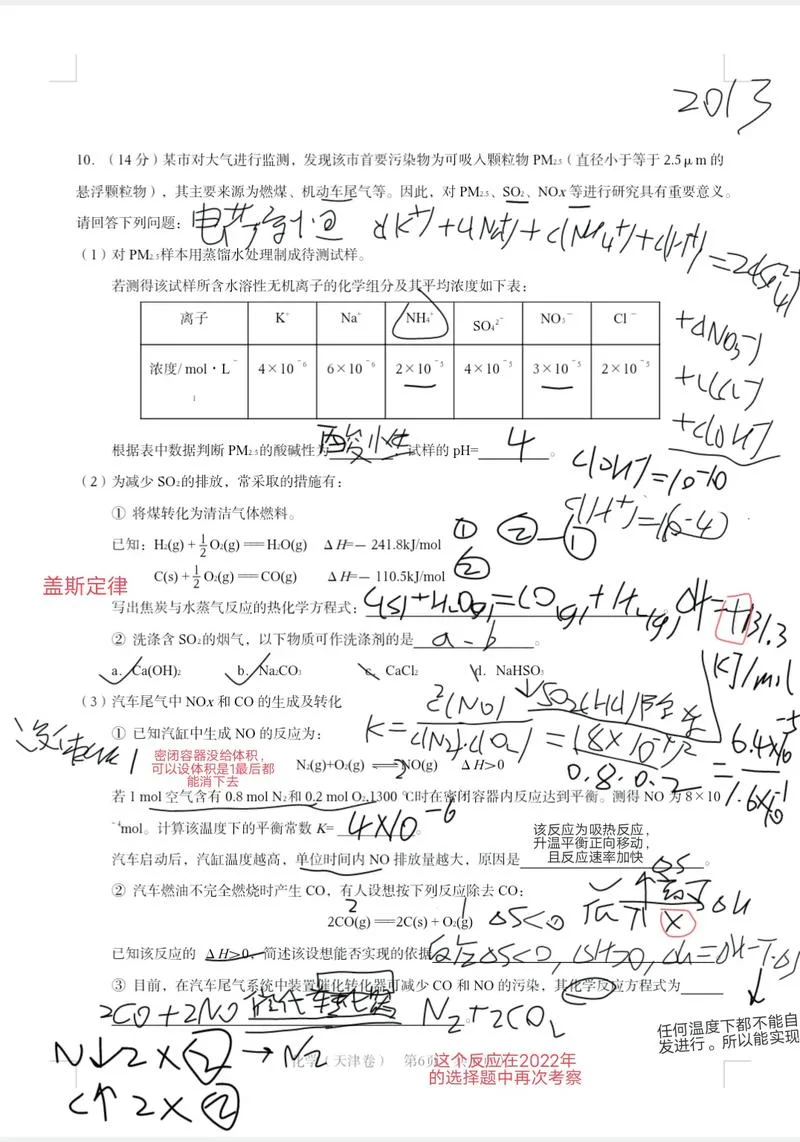 2013
10.（14 分）某市对大气进行监测，发现该市首要污染物为可吸入颗粒物 PM2.5（直径小于等于 2.5μm 的
悬浮颗粒物），其主要来源为燃煤、机动车尾气等。因此，对 PM2.5、SO2、NOx 等进行研究具有重要意义。
请回答下列问题：
电荷守恒 c(K+)+c(Na+)+c(NH4+)+c(H+)=2c(SO4 2-)
+c(NO3-)
+c(Cl-)
+c(OH-)
（1）对 PM2.5样本用蒸馏水处理制成待测试样。
若测得该试样所含水溶性无机离子的化学组分及其平均浓度如下表：
离子 K+ Na+ NH4+ SO4 2− NO3− Cl−
浓度/ mol·L−1 4×10−6 6×10−6 2×10−5 4×10−5 3×10−5 2×10−5
根据表中数据判断 PM2.5的酸碱性为 酸性 试样的 pH= 4 。
c(OH-)=10-10
c(H+)=10-4
（2）为减少 SO2的排放，常采取的措施有：
① 将煤转化为清洁气体燃料。
已知：H2(g) + 1/2 O2(g) ══H2O(g) ΔH=− 241.8kJ/mol ①
②-①
C(s) + 1/2 O2(g) ══CO(g) ΔH=− 110.5kJ/mol ②
盖斯定律
写出焦炭与水蒸气反应的热化学方程式： C(s)+H2O(g)=CO(g)+H2(g) ΔH=+131.3
kJ/mol
② 洗涤含 SO2的烟气，以下物质可作洗涤剂的是 a、b 。
a．Ca(OH)2 b．Na2CO3 c．CaCl2 d．NaHSO3
（3）汽车尾气中 NOx 和 CO 的生成及转化
① 已知汽缸中生成 NO 的反应为：
K= c2(NO) / c(N2)·c(O2) = (8×10-4)2 / 0.8·0.2 =
密闭容器没给体积，
可以设体积是1最后都
能消下去
N2(g)+O2(g) ⇌ 2NO(g) ΔH＞0
若 1 mol 空气含有 0.8 mol N2和 0.2 mol O2,1300 ℃时在密闭容器内反应达到平衡。测得 NO 为 8×10
−4mol。计算该温度下的平衡常数 K= 4×10-6 。
汽车启动后，汽缸温度越高，单位时间内 NO 排放量越大，原因是
该反应为吸热反应，
升温平衡正向移动，
且反应速率加快
。
② 汽车燃油不完全燃烧时产生 CO，有人设想按下列反应除去 CO：
2CO(g)══2C(s) + O2(g) ΔS<0
ΔS
ΔH
已知该反应的 ΔH＞0，简述该设想能否实现的依据 ΔS<0, ΔH>0, ΔG=ΔH-T·ΔS
任何温度下都不能自
发进行。所以能实现
③ 目前，在汽车尾气系统中装置催化转化器可减少 CO 和 NO 的污染，其化学反应方程式为
2CO+2NO 催化转化器 N2+2CO2
。
N↓2×② → N2
C↑2×②
化学（天津卷）
这个反应在2022年
的选择题中再次考察